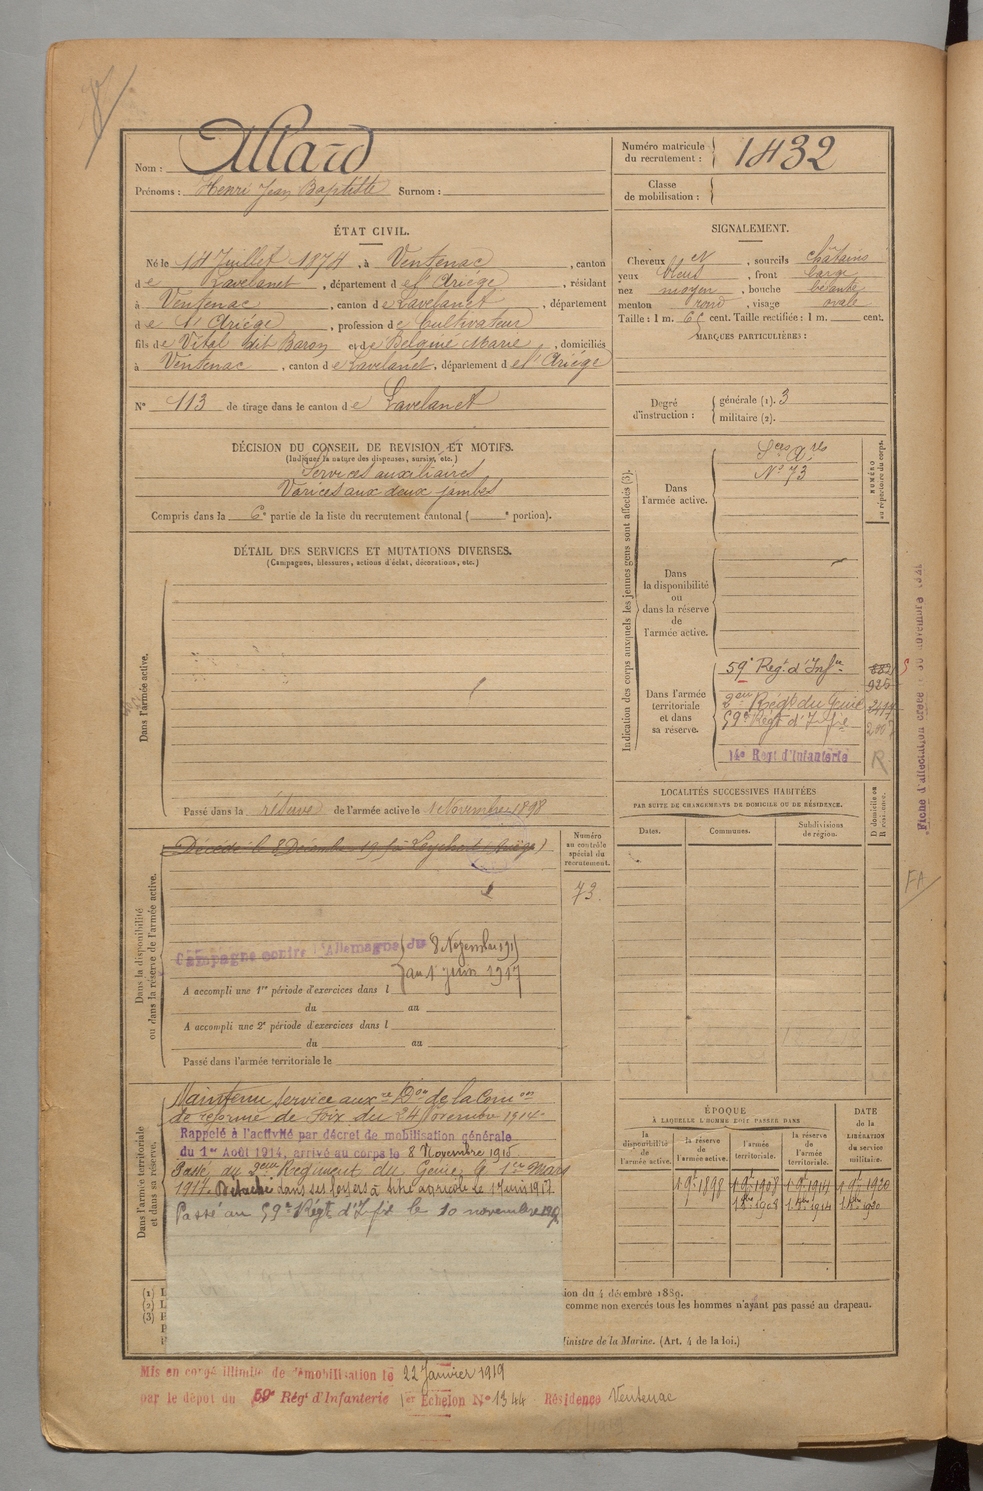 Allard
Nom :
Prénoms : Henri Jean Baptiste Surnom :
Numéro matricule du recrutement : 1432
Classe de mobilisation :
ÉTAT CIVIL.
Né le 14 Juillet 1874, à Ventenac, canton
de Lavelanet, département de l'Ariège, résidant
à Ventenac, canton de Lavelanet, département
de l'Ariège, profession de Cultivateur
fils de Vital dit Baron et de Marie, domiciliés
à Ventenac, canton de Lavelanet, département de l'Ariège
N° 113 de tirage dans le canton de Lavelanet
SIGNALEMENT.
Cheveux, sourcils châtains
yeux bleus, front large
nez moyen, bouche
menton rond, visage ovale
Taille : 1 m. 65 cent. Taille rectifiée : 1 m. cent.
MARQUES PARTICULIÈRES :
Degré d'instruction :
générale (1). 3
militaire (2).
DÉCISION DU CONSEIL DE REVISION ET MOTIFS.
(Indiquer la nature des dispenses, sursis, etc.)
Services auxiliaires
Varices aux deux jambes
Compris dans la 6e partie de la liste du recrutement cantonal ( e portion).
DÉTAIL DES SERVICES ET MUTATIONS DIVERSES.
(Campagnes, blessures, actions d'éclat, décorations, etc.)
Dans l'armée active.
Passé dans la réserve de l'armée active le 1 Novembre 1898
Indication des corps auxquels les jeunes gens sont affectés (3).
Dans l'armée active.
N° 73
NUMÉRO au répertoire du corps.
Dans la disponibilité ou dans la réserve de l'armée active.
Dans l'armée territoriale et dans sa réserve.
59e Régt d'Infie
2em Régt du Génie
59e Régt d'Infie
14e Régt d'Infanterie
R
LOCALITÉS SUCCESSIVES HABITÉES
PAR SUITE DE CHANGEMENTS DE DOMICILE OU DE RÉSIDENCE.
Dates.
Communes.
Subdivisions de région.
D domicile ou R résidence.
Dans la disponibilité ou dans la réserve de l'armée active.
Décédé le 8 Décembre
Numéro au contrôle spécial du recrutement.
73
Campagne contre l'Allemagne du 8 Novembre 1915
au 1 juin 1917
A accompli une 1re période d'exercices dans l
du au
A accompli une 2e période d'exercices dans l
du au
Passé dans l'armée territoriale le
Dans l'armée territoriale et dans sa réserve.
Maintenu service auxre Don de la Comon
de réforme de Foix du 24 Novembre 1914
Rappelé à l'activité par décret de mobilisation générale
du 1er Août 1914, arrivé au corps le 8 Novembre 1915
Passé au 2em Régiment du Génie le 1er Mars
1917. Détaché dans ses foyers à titre agricole le 1 juin 1917
Passé au 59e Régt d'Infie le 10 novembre
ÉPOQUE
À LAQUELLE L'HOMME DOIT PASSER DANS
la disponibilité de l'armée active.
la réserve de l'armée active.
l'armée territoriale.
la réserve de l'armée territoriale.
DATE de la LIBÉRATION du service militaire.
1 9e 1898 1 9e 1908 1 9e 1914 1 9e 1920
1 8bre 1908 1 8bre 1914 1 8bre 1920
(1)
(2)
(3)
ion du 4 décembre 1889.
comme non exercés tous les hommes n'ayant pas passé au drapeau.
Ministre de la Marine. (Art. 4 de la loi.)
Mis en congé illimité de démobilisation le 22 Janvier 1919
par le dépôt du 59e Régt d'Infanterie 1er Echelon N° 1344 Résidence Ventenac
FA